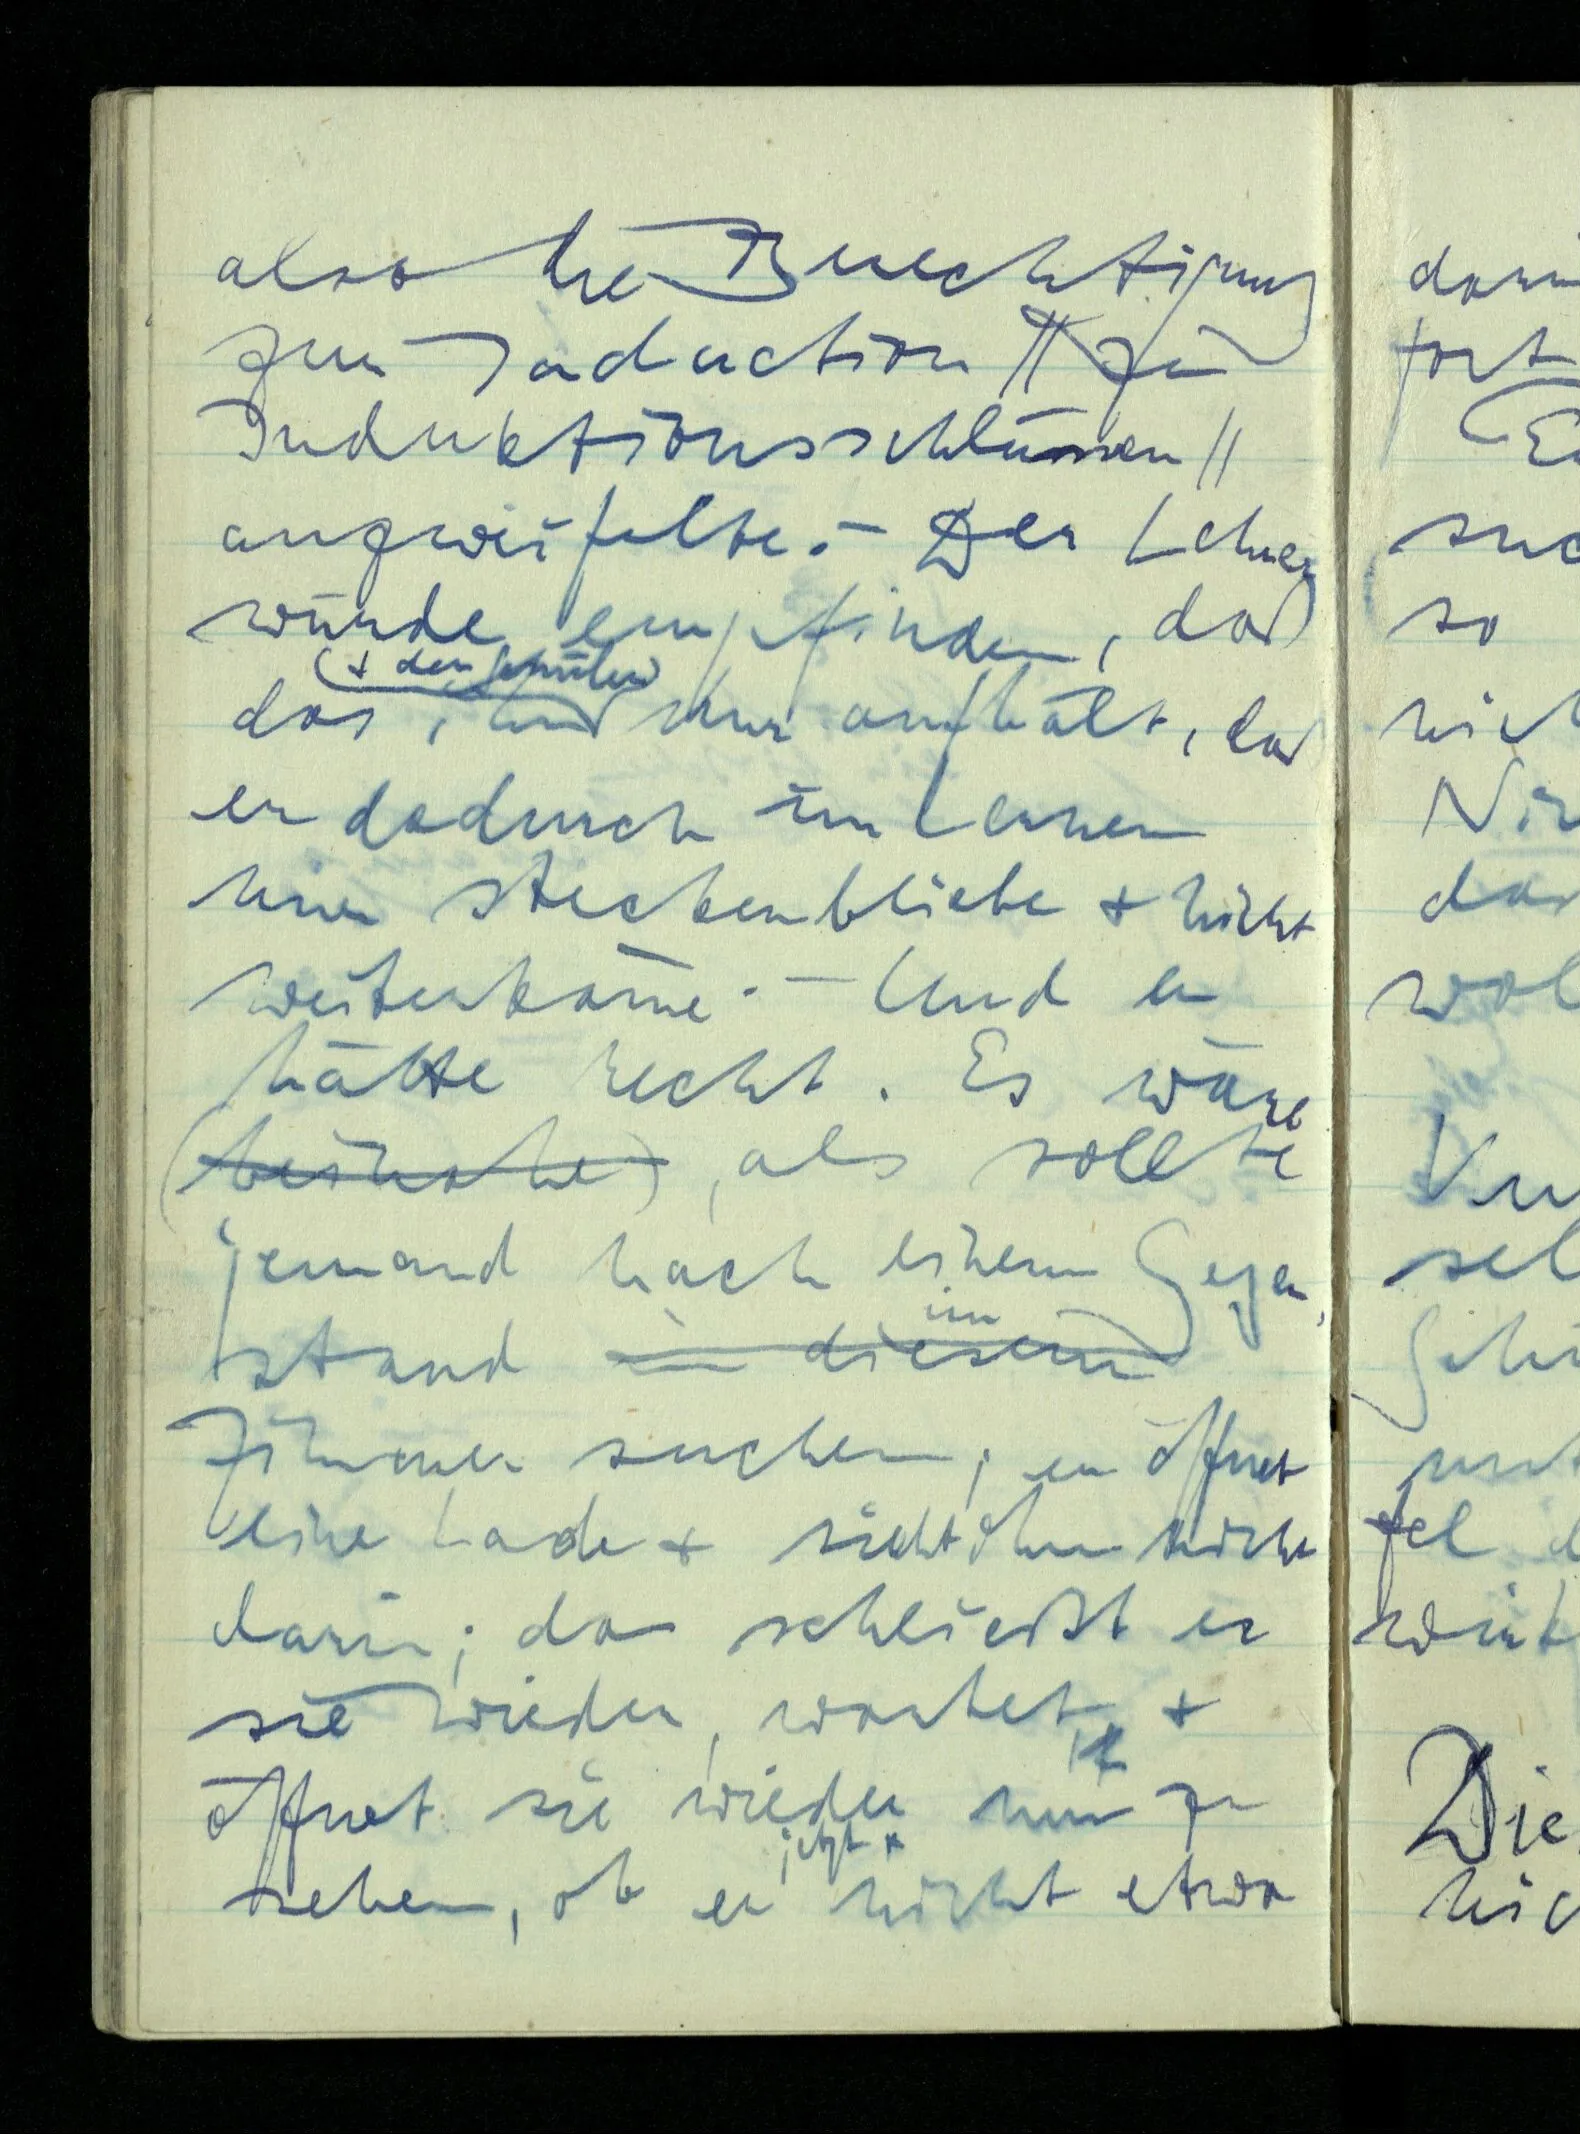 also die Berechtigung
zur Induction // zu
Induktionsschlüssen //
anzweifelte. – Der Lehrer
würde empfinden, daß
(& den Schüler)
das, ihn nur aufhält, daß
er dadurch im Lernen
nur steckenbliebe & nicht
weiterkäme. – Und er
hätte recht. Es wäre
(beinahe), als sollte
jemand nach einem Gegen
im
stand in diesem
Zimmer suchen; er öffnet
eine Lade & sieht ihn nicht
darin; da schließt er
sie wieder, wartet, &
öffnet sie wieder um zu
jetzt
sehen, ob er nicht etwa
fort
so
Die